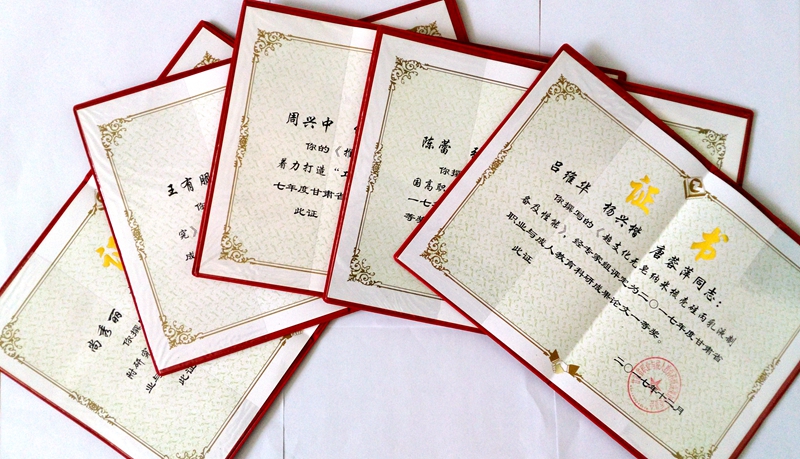 尚秀丽
你撰
附研究
业与
此证
王有
你
究》
成
周兴中
你的《推
着力打造“工
七年度甘肃省
此证
陈蕾
你撰
国高职
一七
等奖
证书
吕维华 杨兴楷 唐蓉萍同志:
你撰写的《超支化石皂纳米核壳硅丙乳液制
备及性能》,经专家组评定为二〇一七年度甘肃省
职业与成人教育科研成果论文一等奖。
此证
二〇一七年十二月